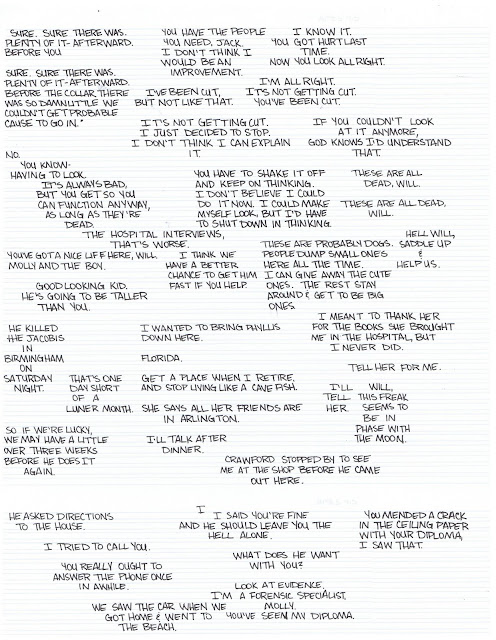 SURE. SURE THERE WAS.
PLENTY OF IT- AFTERWARD.
BEFORE YOU
SURE. SURE THERE WAS.
PLENTY OF IT- AFTERWARD.
BEFORE THE COLLAR THERE
WAS SO DAMN LITTLE WE
COULDN'T GET PROBABLE
CAUSE TO GO IN."
YOU HAVE THE PEOPLE
YOU NEED, JACK.
I DON'T THINK I
WOULD BE AN
IMPROVEMENT.
I KNOW IT.
YOU GOT HURT LAST
TIME.
NOW YOU LOOK ALL RIGHT.
I'M ALL RIGHT.
IT'S NOT GETTING CUT.
YOU'VE BEEN CUT.
I'VE BEEN CUT,
BUT NOT LIKE THAT.
IT'S NOT GETTING CUT.
I JUST DECIDED TO STOP.
I DON'T THINK I CAN EXPLAIN
IT.
IF YOU COULDN'T LOOK
AT IT ANYMORE,
GOD KNOWS I'D UNDERSTAND
THAT.
NO.
YOU KNOW-
HAVING TO LOOK.
IT'S ALWAYS BAD,
BUT YOU GET SO YOU
CAN FUNCTION ANYWAY,
AS LONG AS THEY'RE
DEAD.
THE HOSPITAL INTERVIEWS,
THAT'S WORSE.
YOU HAVE TO SHAKE IT OFF
AND KEEP ON THINKING.
I DON'T BELIEVE I COULD
DO IT NOW. I COULD MAKE
MYSELF LOOK, BUT I'D HAVE
TO SHUT DOWN IN THINKING.
THESE ARE ALL
DEAD, WILL.
THESE ARE ALL DEAD,
WILL.
YOU'VE GOT A NICE LIFE HERE, WILL.
MOLLY AND THE BOY.
GOOD LOOKING KID.
HE'S GOING TO BE TALLER
THAN YOU.
I THINK WE
HAVE A BETTER
CHANCE TO GET HIM
FAST IF YOU HELP.
THESE ARE PROBABLY DOGS.
PEOPLE DUMP SMALL ONES
HERE ALL THE TIME.
I CAN GIVE AWAY THE CUTE
ONES. THE REST STAY
AROUND & GET TO BE BIG
ONES.
HELL WILL,
SADDLE UP
&
HELP US.
HE KILLED
THE JACOBIS
IN
BIRMINGHAM
ON
SATURDAY
NIGHT.
THAT'S ONE
DAY SHORT
OF A
LUNER MONTH.
SO IF WE'RE LUCKY,
WE MAY HAVE A LITTLE
OVER THREE WEEKS
BEFORE HE DOES IT
AGAIN.
I WANTED TO BRING PHYLLIS
DOWN HERE.
FLORIDA.
GET A PLACE WHEN I RETIRE,
AND STOP LIVING LIKE A CAVE FISH.
SHE SAYS ALL HER FRIENDS ARE
IN ARLINGTON.
I'LL TALK AFTER
DINNER.
I MEANT TO THANK HER
FOR THE BOOKS SHE BROUGHT
ME IN THE HOSPITAL, BUT
I NEVER DID.
TELL HER FOR ME.
I'LL
TELL
HER.
WILL,
THIS FREAK
SEEMS TO
BE IN
PHASE WITH
THE MOON.
CRAWFORD STOPPED BY TO SEE
ME AT THE SHOP BEFORE HE CAME
OUT HERE.
HE ASKED DIRECTIONS
TO THE HOUSE.
I TRIED TO CALL YOU.
YOU REALLY OUGHT TO
ANSWER THE PHONE ONCE
IN AWHILE.
WE SAW THE CAR WHEN WE
GOT HOME & WENT TO
THE BEACH.
I
I SAID YOU'RE FINE
AND HE SHOULD LEAVE YOU THE
HELL ALONE.
WHAT DOES HE WANT
WITH YOU?
LOOK AT EVIDENCE,
I'M A FORENSIC SPECIALIST,
MOLLY.
YOU'VE SEEN MY DIPLOMA.
YOU MENDED A CRACK
IN THE CEILING PAPER
WITH YOUR DIPLOMA,
I SAW THAT.